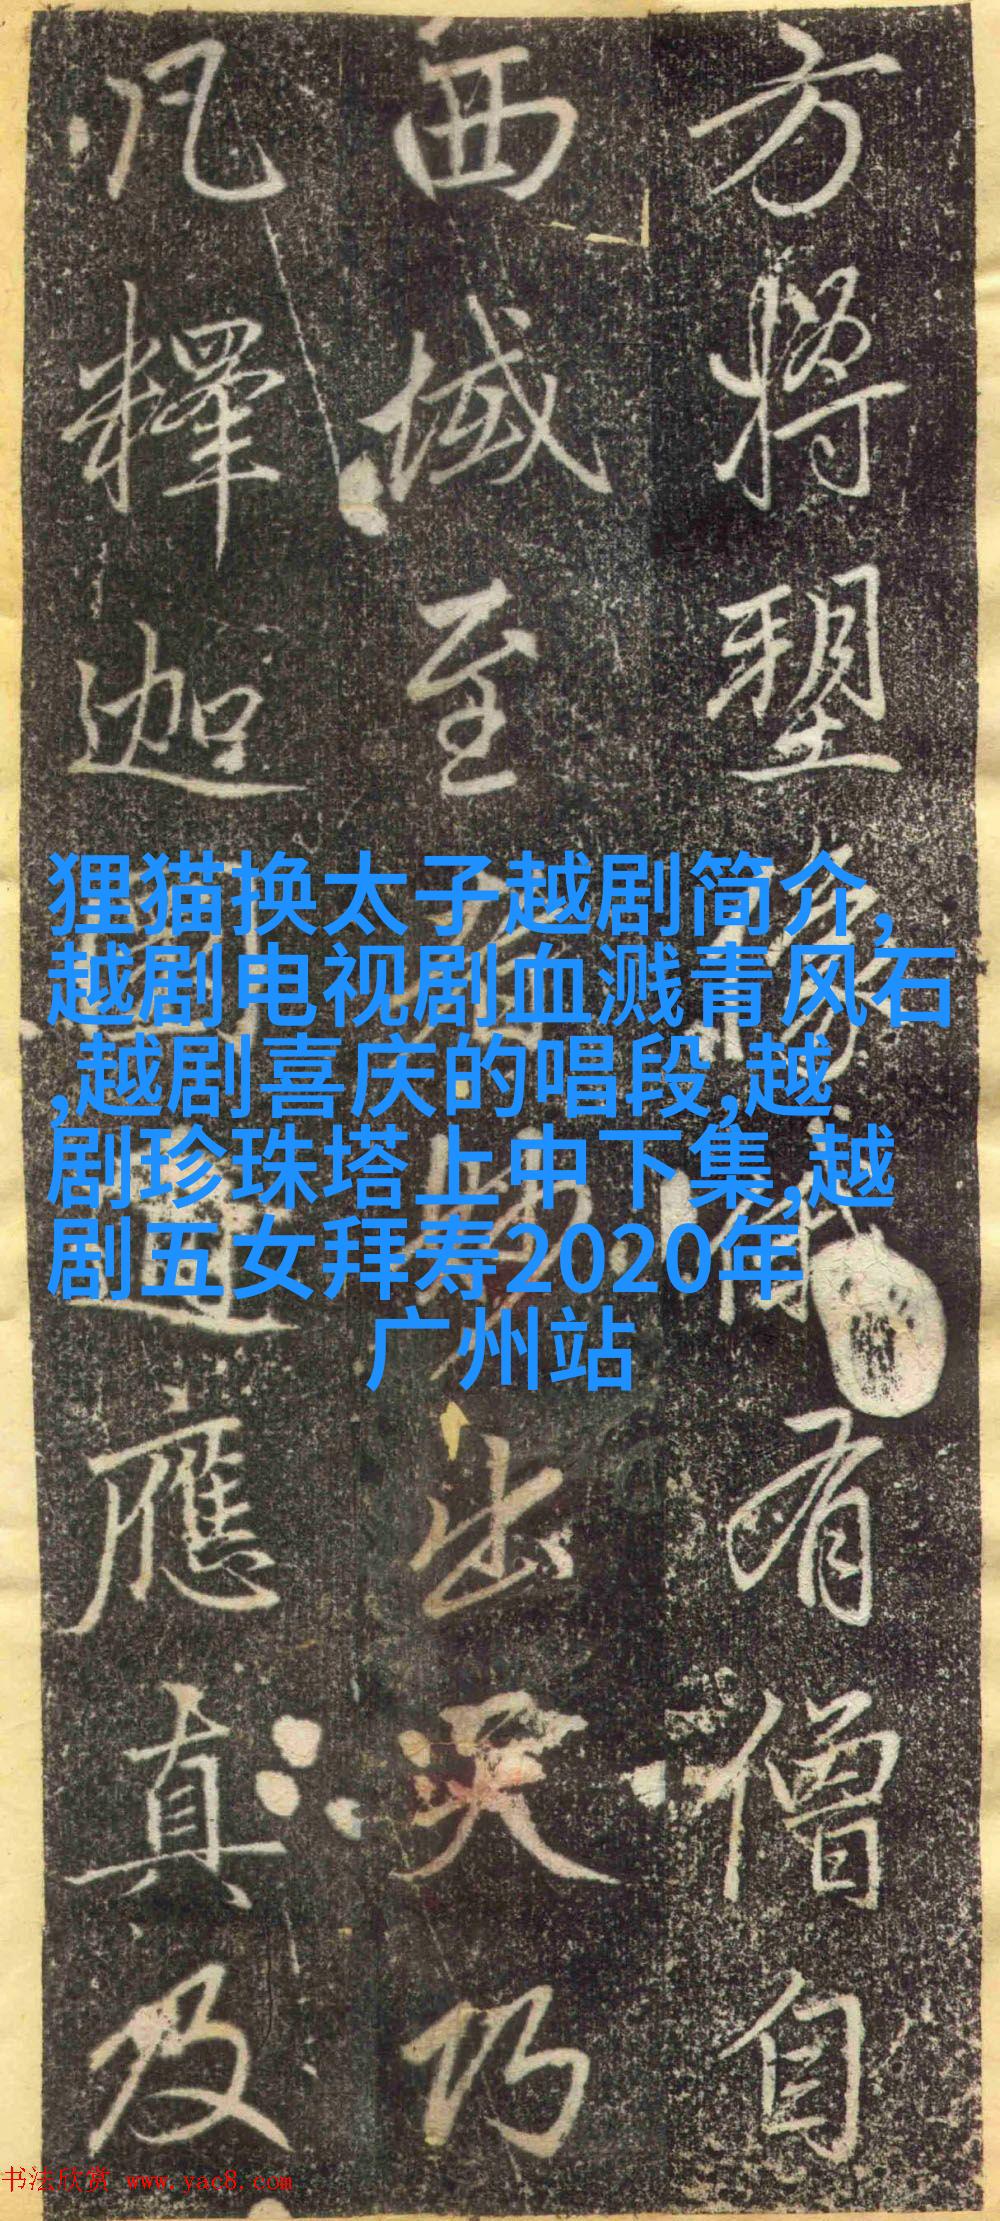 方將塑像有僧自
西域至出天巧
凡釋迦應真及
狸猫换太子越剧简介,
越剧电视剧血溅青风石
,越剧喜庆的唱段,越
剧珍珠塔上中下集,越
剧五女拜寿2020年
广州站
书法欣赏 www.yac8.com